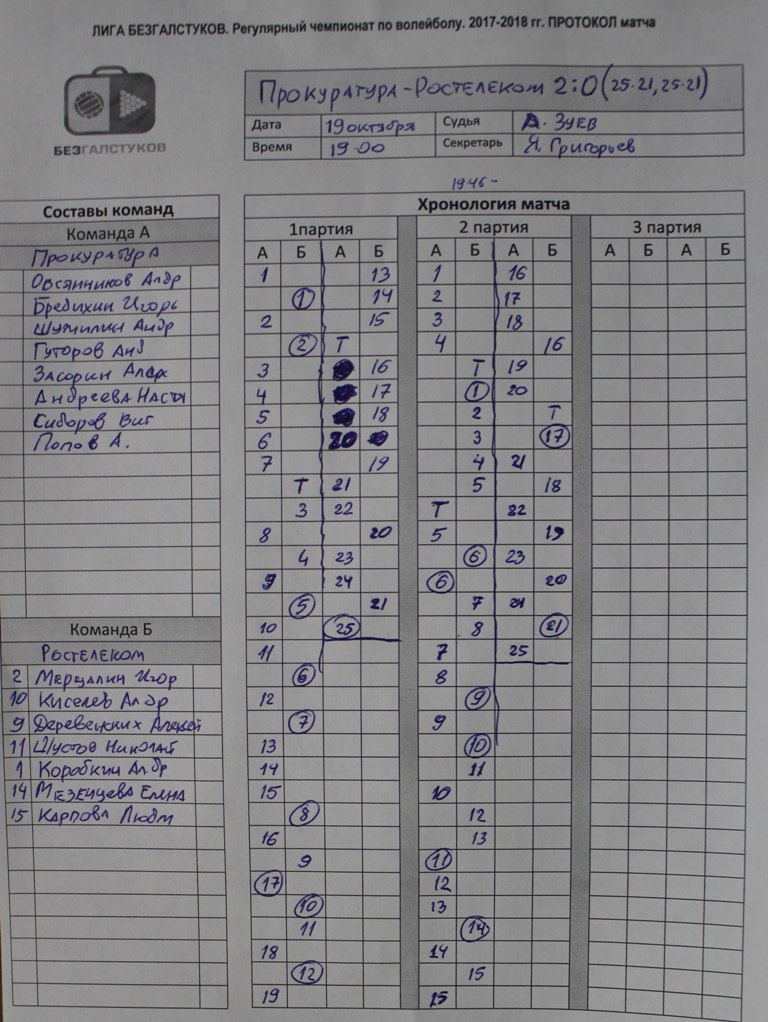 ЛИГА БЕЗГАЛСТУКОВ. Регулярный чемпионат по волейболу. 2017-2018 гг. ПРОТОКОЛ матча
БЕЗГАЛСТУКОВ
Прокуратура-Ростелеком 2:0 (25-21, 25-21)
Дата 19 октября Судья А. Зуев
Время 19-00 Секретарь Я. Григорьев
1946-
Составы команд
Команда А
Прокуратура
Овсянников Алдр
Бребихин Игорь
Шумилин Андр
Гуторов Анд
Засорин Алдх
Андреева Настя
Сидоров Вит
Попов А.
Команда Б
Ростелеком
2 Мерцалин Игор
10 Киселев Алдр
9 Деревенских Алексей
11 Шустов Николай
1 Коробкин Алдр
14 Мезенцева Елена
15 Карпова Людм
Хронология матча
1партия 2 партия 3 партия
А Б А Б А Б А Б А Б А Б
1 13 1 16
1 14 2 17
2 15 3 18
2 Т 4 16
3 16 Т 19
4 17 1 20
5 18 2 Т
6 20 3 17
7 19 4 21
Т 21 5 18
3 22 Т 22
8 20 5 19
4 23 6 23
9 24 6 20
5 21 7 24
10 25 8 21
11 7 25
6 8
12 9
7 9
13 10
14 11
15 10
8 12
16 13
9 11
17 12
10 13
11 14
18 14
12 15
19 15